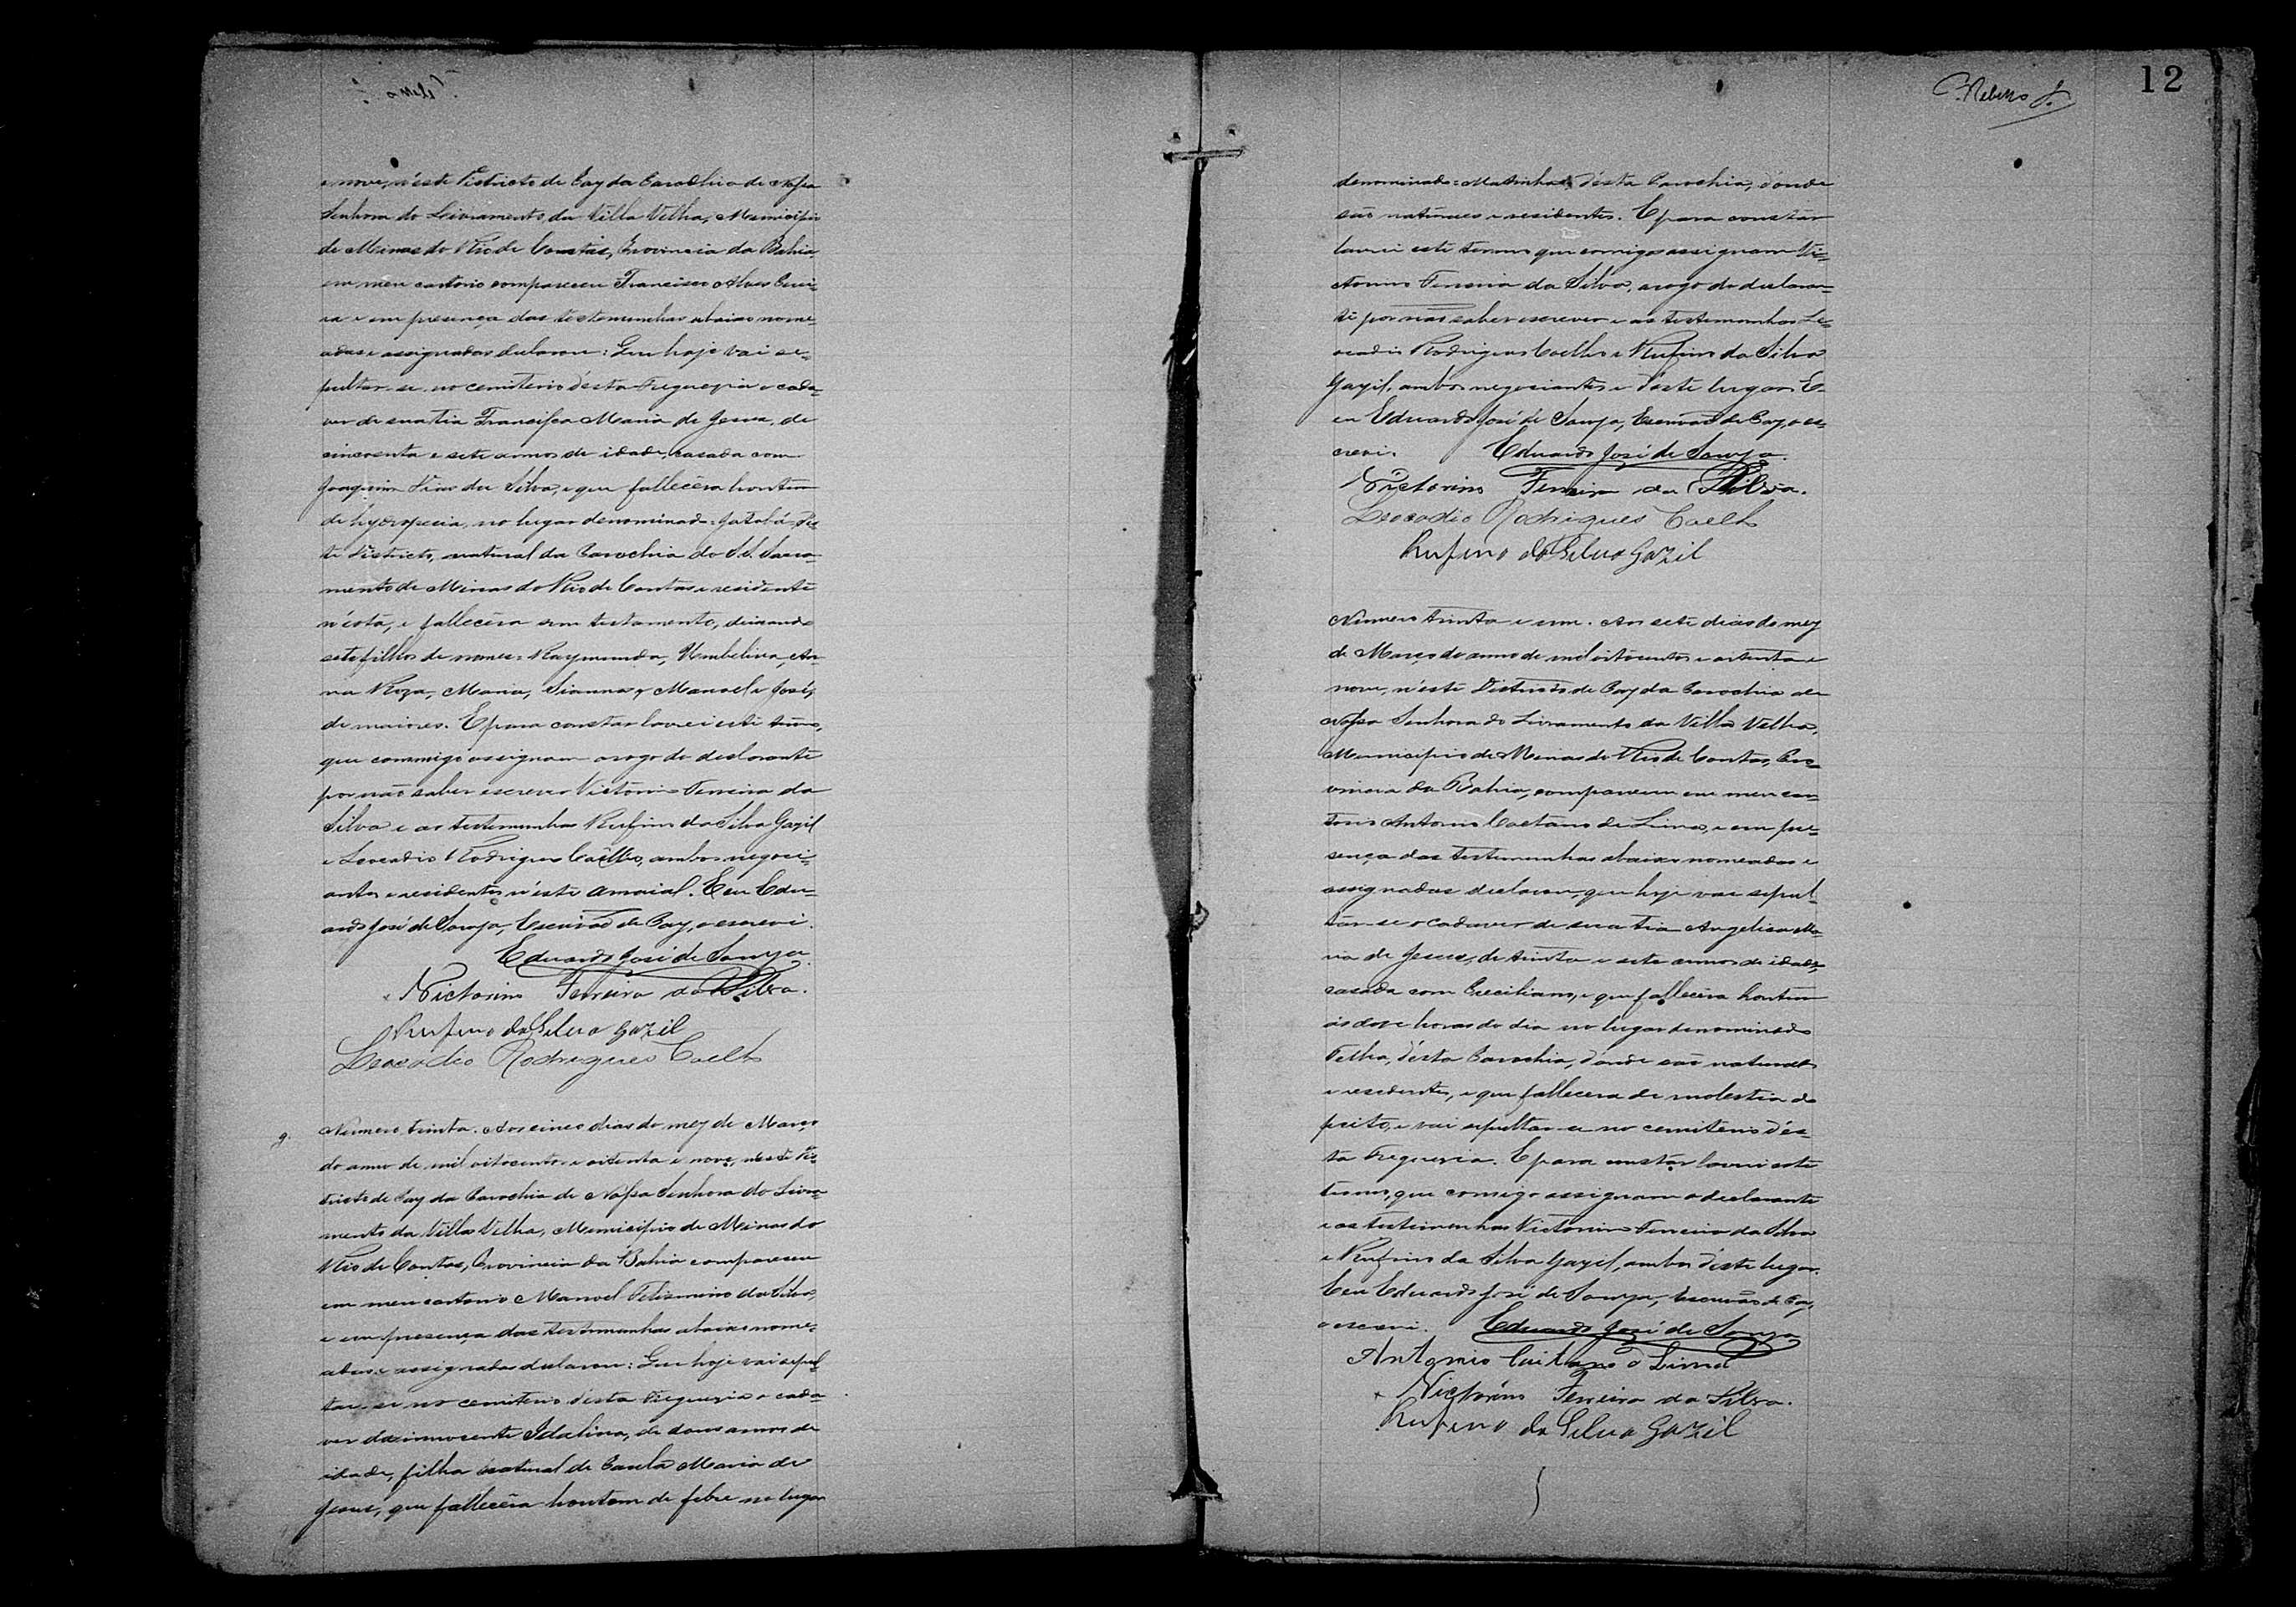 e nove, n'este Districto de Paz da Parochia de Nossa
Senhora do Livramento da Villa Velha, Municipio
de Minas do Rio de Contas, Provincia da Bahia
em meu cartorio compareceu Francisco Alves Perei-
ra e em presença das testemunhas abaixo nome-
adas e assignadas declarou: Que hoje vai se-
pultar-se no cemiterio d'esta Freguezia o cada-
ver de sua tia Francisca Maria de Jesus, de
cincoenta e sete annos de idade, casada com
Joaquim Dias da Silva, e que fallecêra hontem
de hydropesia, no lugar denominado: Jatobá, d'es-
te Districto, natural da Parochia do S.S. Sacra-
mento de Minas do Rio de Contas e residente
n'esta, e fallecêra sem testamento, deixando
sete filhos de nomes: Raymunda, Umbelina, An-
na Roza, Maria, Manoel e José,
de maiores. E para constar lavrei este termo,
que commigo assignam a rogo do declarante
por não saber escrever Victorino Ferreira da
Silva e as testemunhas Rufino da Silva Gazil
e Leocadio Rodrigues Coelho, ambos negoci-
antes e residentes n'este Arraial. E eu Edu-
ardo José de Souza, Escrivão de Paz, o escrevi.
Eduardo José de Souza.
Victorino Ferreira da Silva.
Rufino da Silva Gazil
Leocadio Rodrigues Coelho
Numero trinta. Aos cinco dias do mez de Março
do anno de mil oitocentos e oitenta e nove, neste Dis-
tricto de Paz da Parochia de Nossa Senhora do Livra-
mento da Villa Velha, Municipio de Minas do
Rio de Contas, Provincia da Bahia compareceu
em meu cartorio Manoel Felismino da Silva,
e em presença das testemunhas abaixo nome-
adas e assignadas declarou: Que hoje vai sepul-
tar-se no cemiterio d'esta Freguezia o cada-
ver da innocente Idalina, de dous annos de
idade, filha natural de Paula Maria de
Jesus, que fallecêra hontem de febre no lugar
12
Rebello
denominado: Matinha d'esta Parochia, d'onde
são naturaes e residentes. E para constar
lavrei este termo que comigo assignam Vi-
ctorino Ferreira da Silva, a rogo do declaran-
te por não saber escrever e as testemunhas Le-
ocadio Rodrigues Coelho e Rufino da Silva
Gazil, ambos negociantes e d'este lugar. E
eu Eduardo José de Souza, Escrivão de Paz, o es-
crevi. Eduardo José de Souza.
Victorino Ferreira da Silva.
Leocadio Rodrigues Coelho
Rufino da Silva Gazil
Numero trinta e um. Aos sete dias do mez
de Março do anno de mil oitocentos e oitenta e
nove, n'este Districto de Paz da Parochia de
Nossa Senhora do Livramento da Villa Velha,
Municipio de Minas do Rio de Contas, Pro-
vincia da Bahia, compareceu em meu car-
torio Antonio Caetano de Lima, e em pre-
sença das testemunhas abaixo nomeadas e
assignadas declarou, que hoje vae sepul-
tar-se o cadaver de sua tia Angelica Ma-
ria de Jesus, de trinta e sete annos de idade,
casada com Ereciliano, e que fallecêra hontem
ás doze horas do dia no lugar denominado
Telha, d'esta Parochia, d'onde são naturaes
e residentes, e que fallecera de molestia do
peito, e vai sepultar-se no cemiterio d'es-
ta Freguezia. E para constar lavrei este
termo, que comigo assignam o declarante
e as testemunhas Victorino Ferreira da Silva
e Rufino da Silva Gazil, ambos d'este lugar.
E eu Eduardo José de Souza, Escrivão de Paz,
o escrevi. Eduardo José de Souza
Antonio Caitano d Lima
Victorino Ferreira da Silva.
Rufino da Silva Gazil